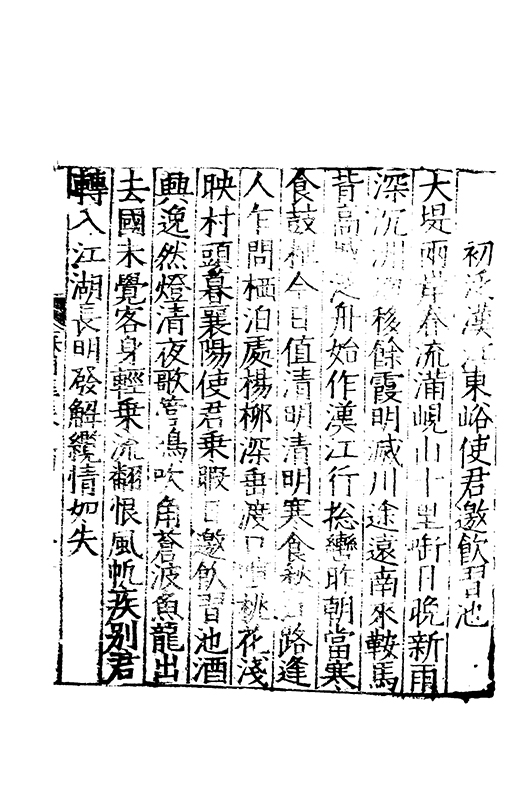 初泛漢江東峪使君邀飲習池
大堤兩岸春流滿峴山十里啣日晚新雨
深沉洲移餘霞明滅川途遠南來鞍馬
昔高城之舟始作漢江行捻轡昨朝當寒
食鼓枻今日值清明清明寒食秋路逢
人乍問栖泊處楊柳深垂渡口桃花淺
映村頭暮襄陽使君乘暇日邀飲習池酒
興逸然燈清夜歌箏鳴吹角蒼波魚龍出
去國未覺客身輕乘流翻恨風帆疾別君
轉入江湖長明發解纜情如失